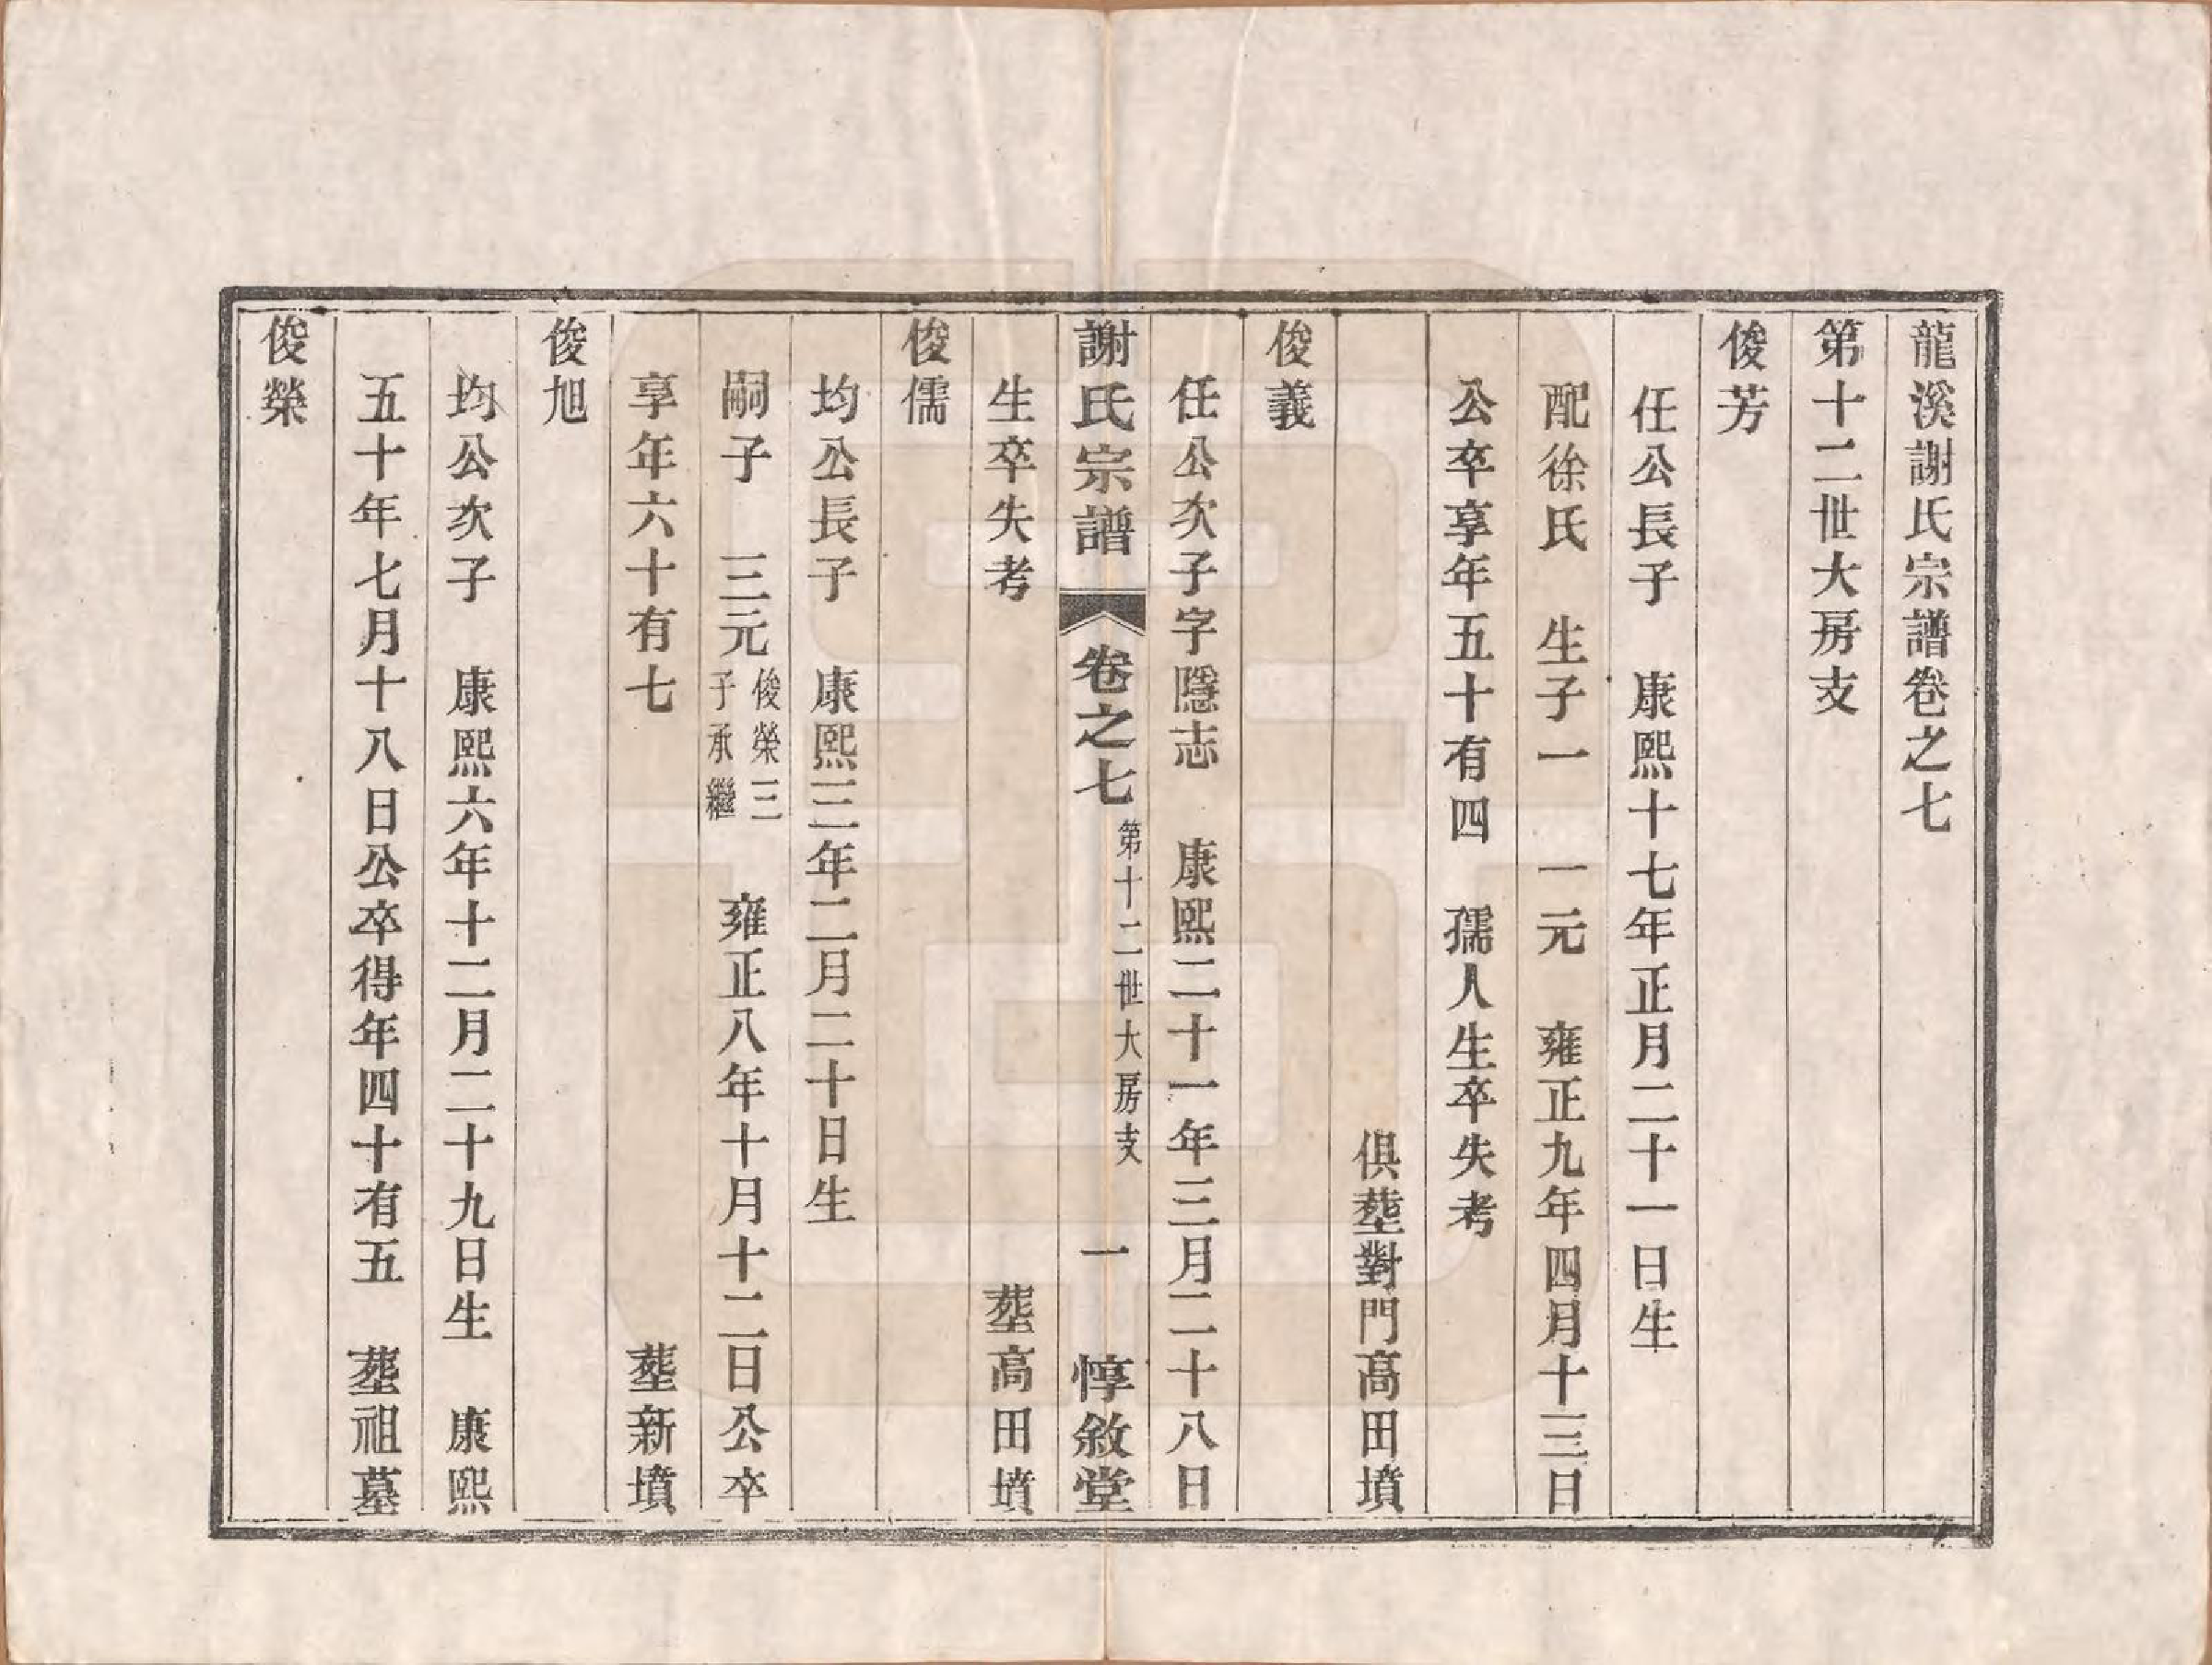 龍溪謝氏宗譜卷之七
第十二世大房支
俊芳
任公長子　康熙十七年正月二十一日生
配徐氏　生子一　一元　雍正九年四月十三日
公卒享年五十有四　孺人生卒失考
俱塟對門高田墳
俊義
任公次子字隱志　康熙二十一年三月二十八日
謝氏宗譜　卷之七　第十二世大房支　一　惇敘堂
生卒失考　塟高田墳
俊儒
均公長子　康熙三年二月二十日生
嗣子　三元　俊榮三子承繼　雍正八年十月十二日公卒
享年六十有七　塟新墳
俊旭
均公次子　康熙六年十二月二十九日生　康熙
五十年七月十八日公卒得年四十有五　塟祖墓
俊榮